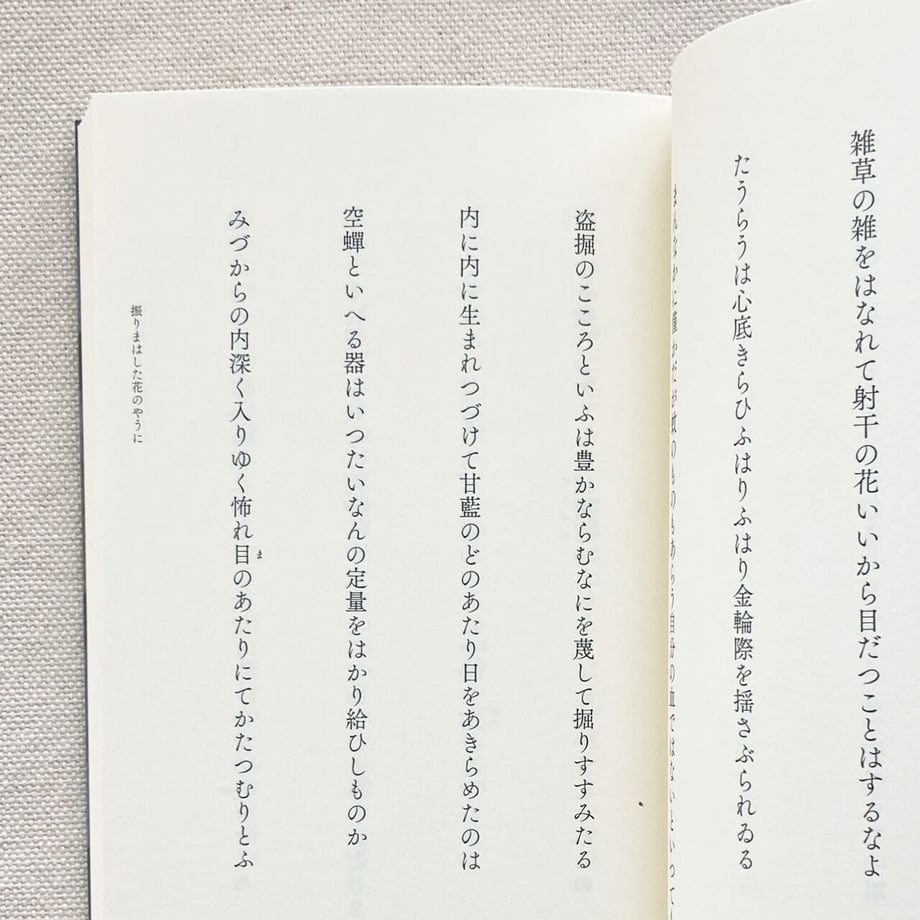 雑草の雑をはなれて射干の花いいから目だつことはするなよ
たうらうは心底きらひふはりふはり金輪際を揺さぶられゐる
まんなかに僅かだが蚊のものもあらう自分の血ではないといつて
盗掘のこころといふは豊かならむなにを蔑して掘りすすみたる
内に内に生まれつづけて甘藍のどのあたり日をあきらめたのは
空蟬といへる器はいつたいなんの定量をはかり給ひしものか
ま
みづからの内深く入りゆく怖れ目のあたりにてかたつむりとふ
振りまはした花のやうに